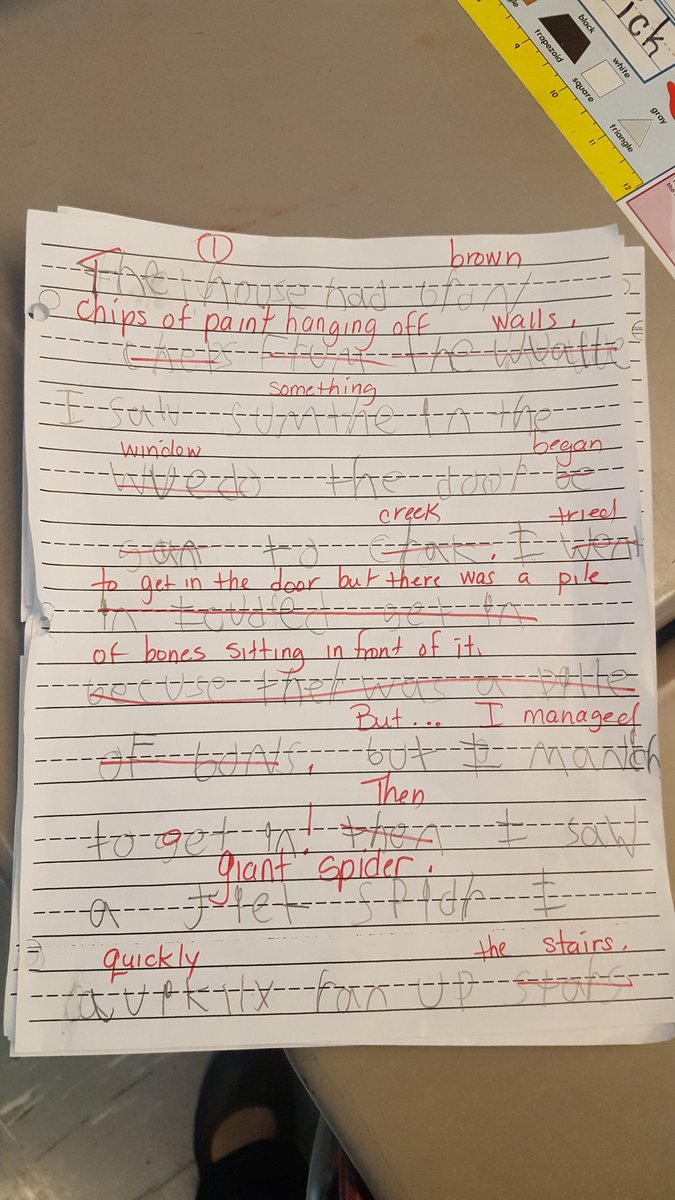 gle
black
ick
trapezoid
white
9
square
gray
10
triangle
11
12
1
brown
The house had
chips of paint hanging off walls.
the
something
I saw sumthe in the
window began
the door be
creek tried
gan to I went
to get in the door but there was a pile
in get in
of bones sitting in front of it.
becuse was a
But... I managed
of but I
Then
to get in! then I saw
giant spider.
a spidr I
quickly the stairs.
ran up stars